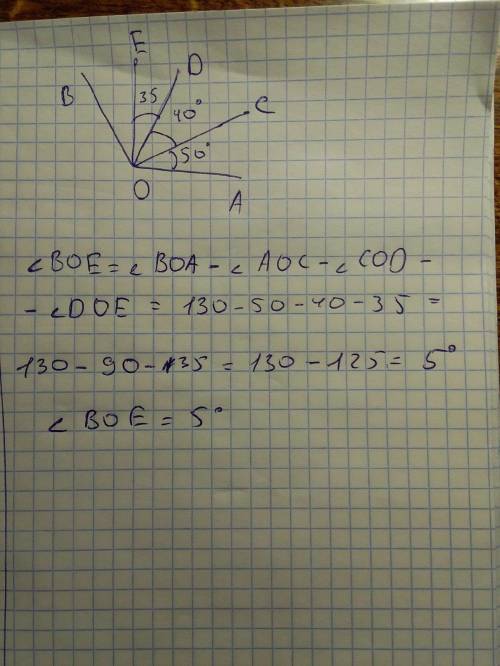 E
D
B
35
40°
C
50°
O
A
∠BOE = ∠BOA - ∠AOC - ∠COD -
- ∠DOE = 130 - 50 - 40 - 35 =
130 - 90 - 35 = 130 - 125 = 5°
∠BOE = 5°